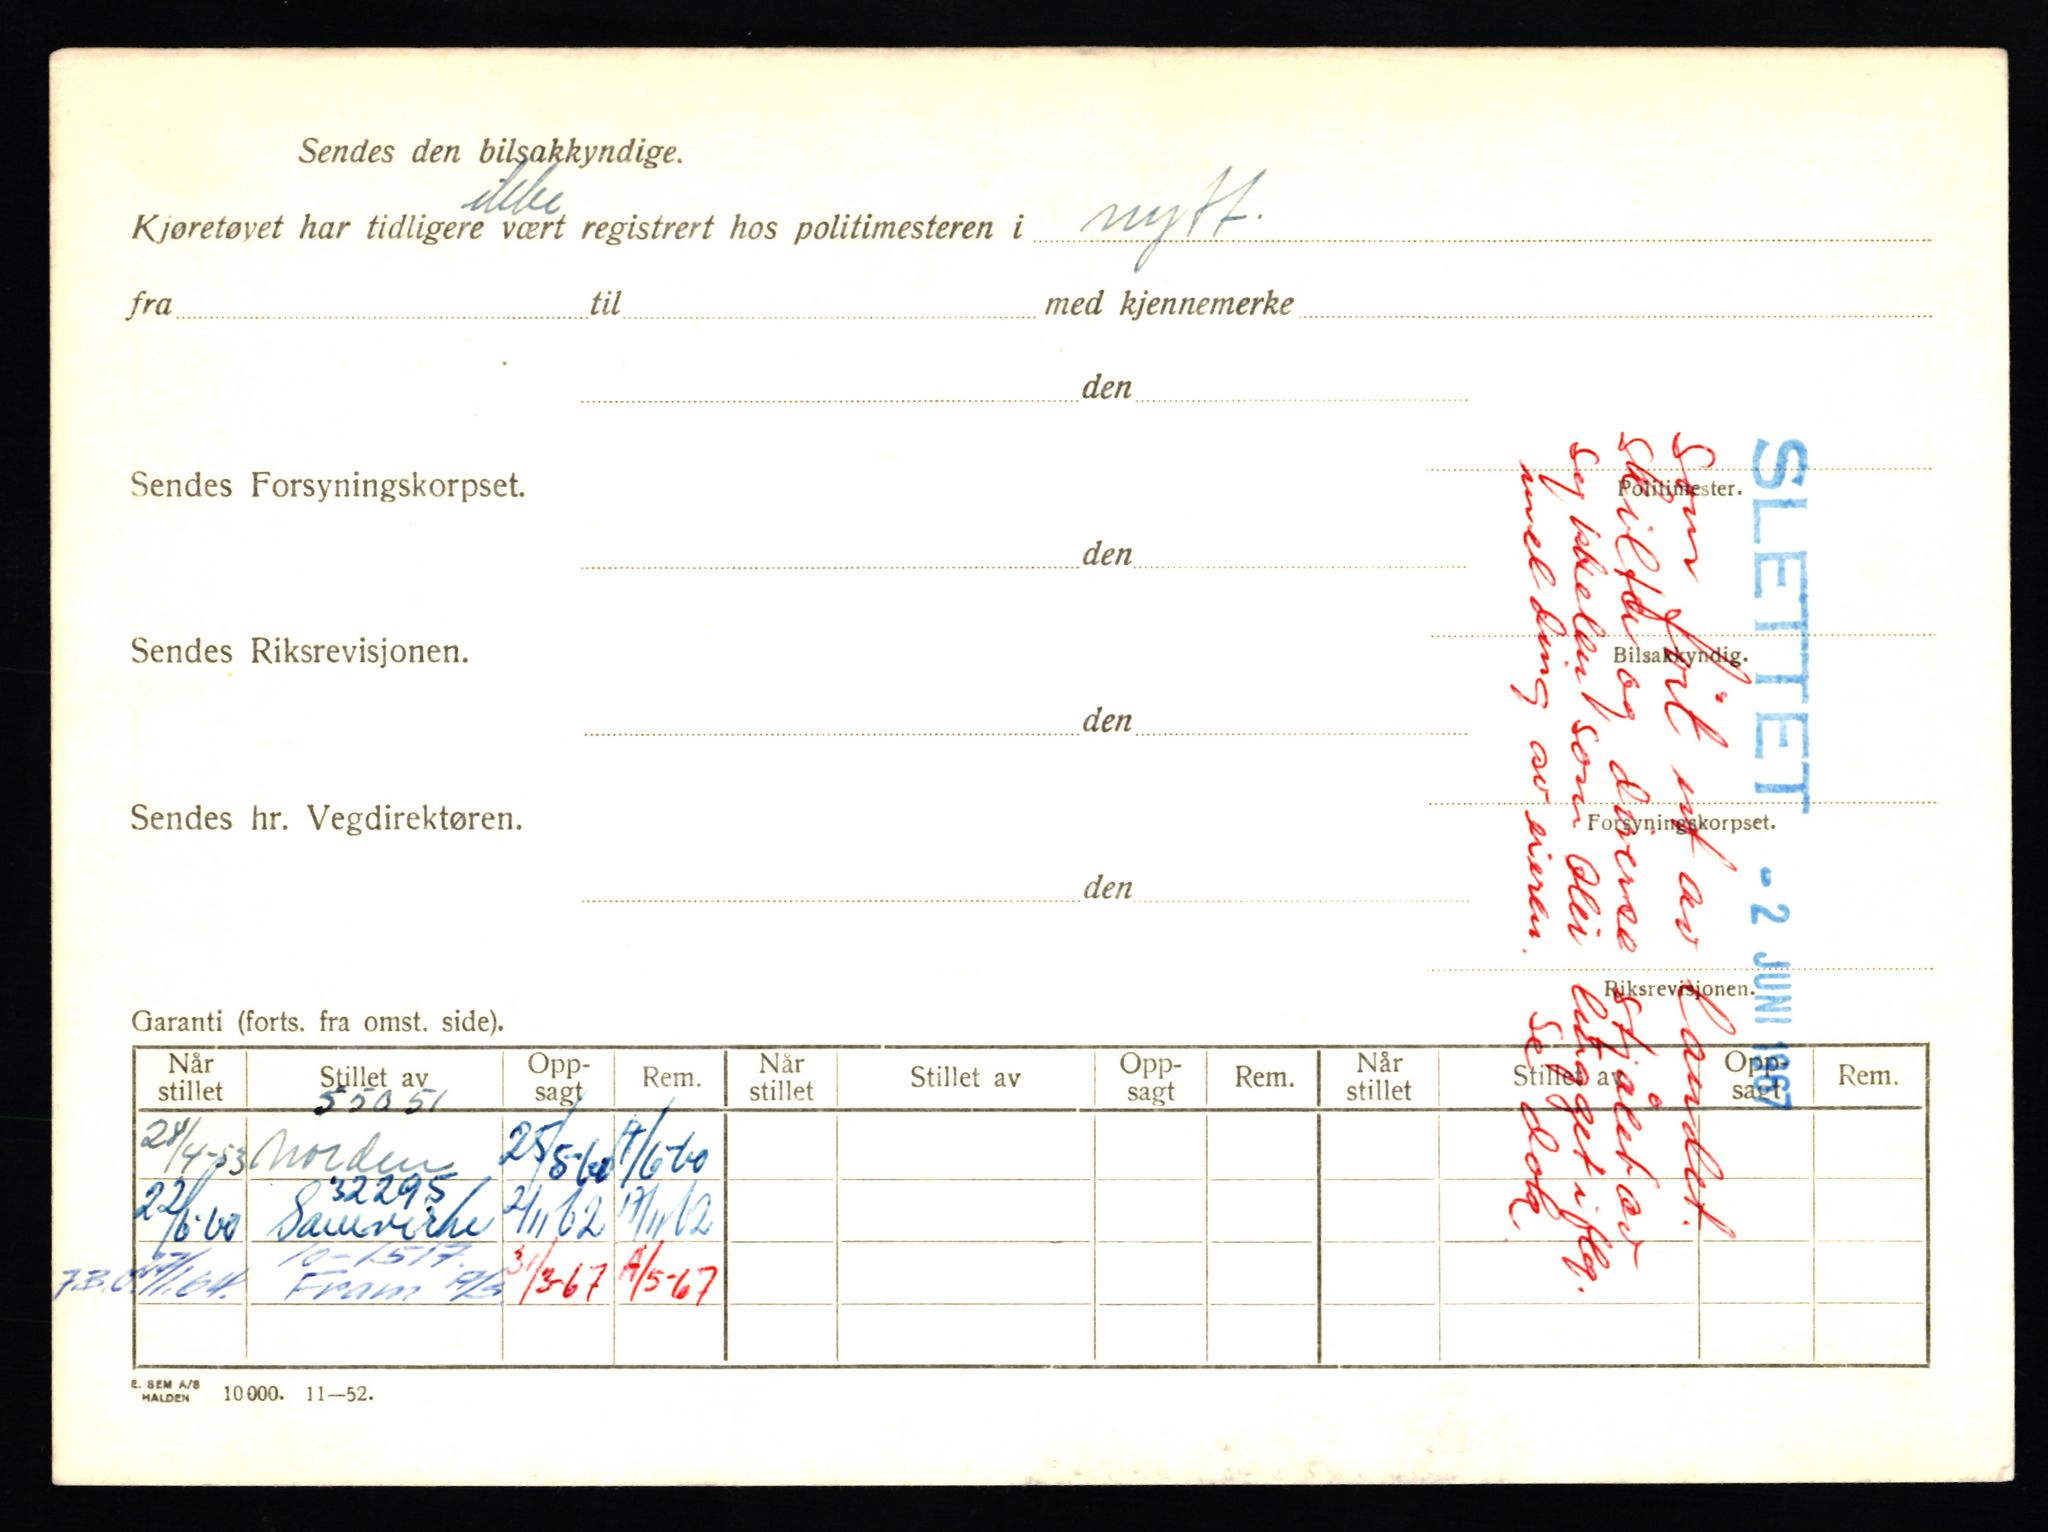 Sendes den bilsakkyndige.
ikke
Kjøretøyet har tidligere vært registrert hos politimesteren i nytt.
fra til med kjennemerke
den
Politimester.
Sendes Forsyningskorpset.
den
Bilsakkyndig.
Sendes Riksrevisjonen.
den
Forsyningskorpset.
Sendes hr. Vegdirektøren.
den
Riksrevisjonen.
SLETTET - 2 JUNI 1967
Som ført ut av landet.
Skilter og diverse stjålet av
sykkelen som blei lagget iflg.
melding av eieren. Se dok.
Garanti (forts. fra omst. side).
Når stillet Stillet av Opp-sagt Rem. Når stillet Stillet av Opp-sagt Rem. Når stillet Stillet av Opp-sagt Rem.
55051
24/4-53 Norden 25/5-60 /6-60
32295
22/6-60 Samvirke 2/11 62 17/11 62
10-1517.
/1.64. Fram A/S. 31/3-67 /5-67
E. SEM A/S
HALDEN 10000. 11—52.